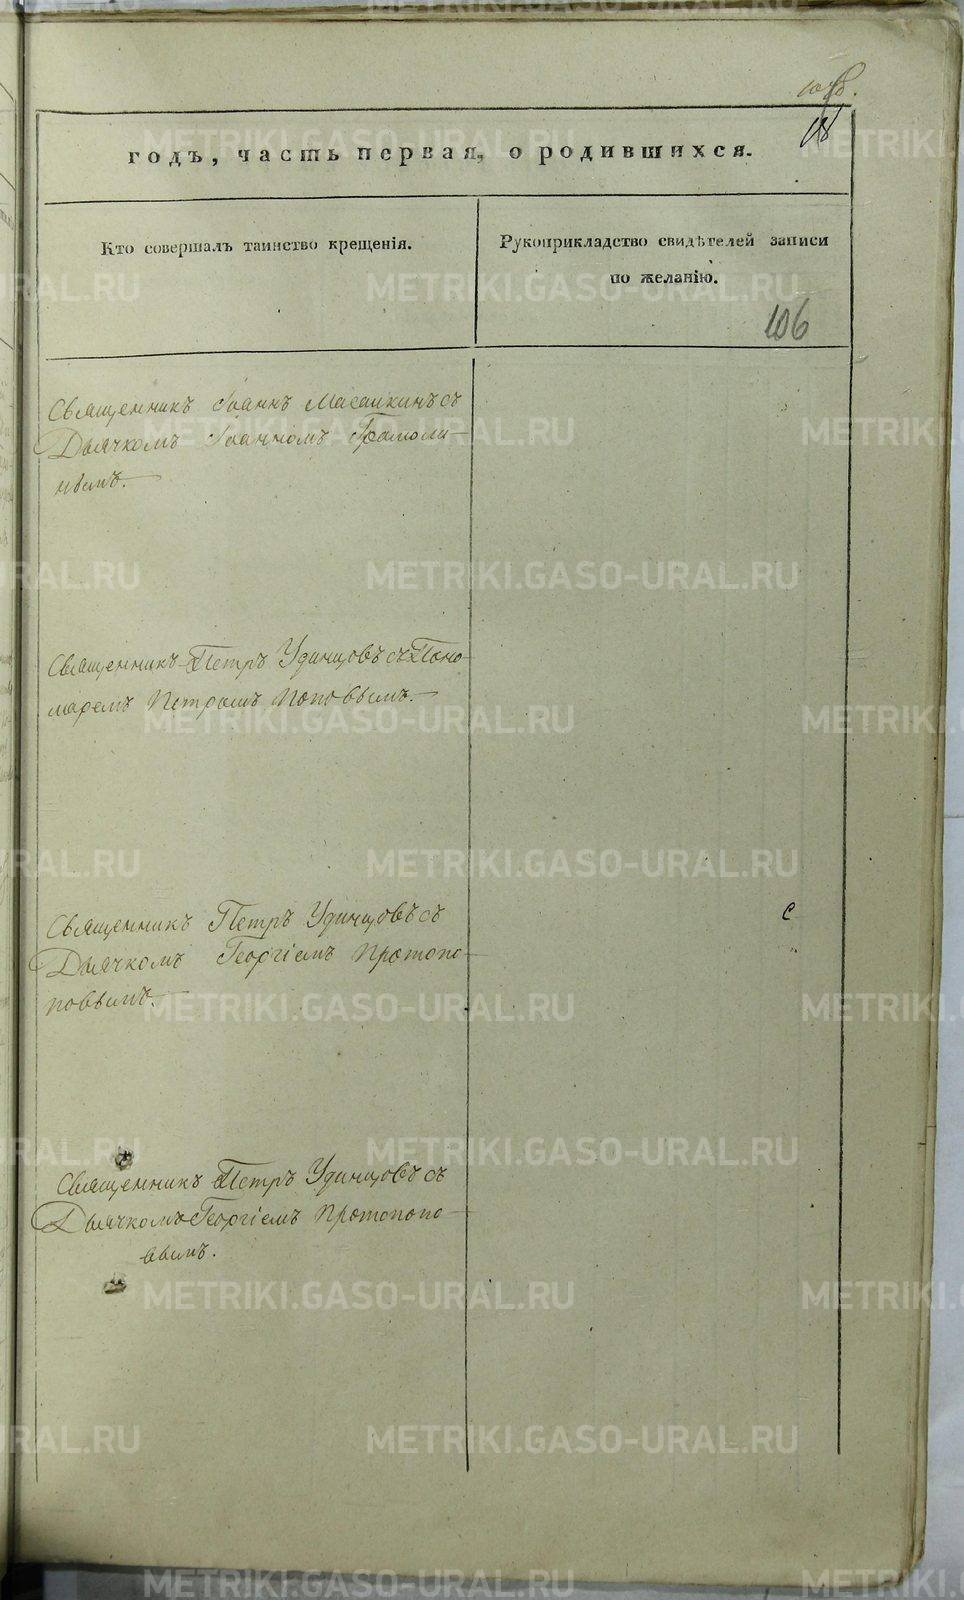 годъ, часть первая, о родившихся.
Кто совершалъ таинство крещенія.
Рукоприкладство свидѣтелей записи
по желанію.
106
Священникъ Іоаннъ Масалкинъ съ
Дьячкомъ Іоанномъ
нымъ.
Священникъ Петръ Удинцовъ съ Поно-
маремъ Петромъ Поповымъ.
Священникъ Петръ Удинцовъ съ
Дьячкомъ Георгіемъ Протопо-
повымъ.
с
Священникъ Петръ Удинцовъ съ
Дьячкомъ Георгіемъ Протопопо-
вымъ.
METRIKI.GASO-URAL.RU